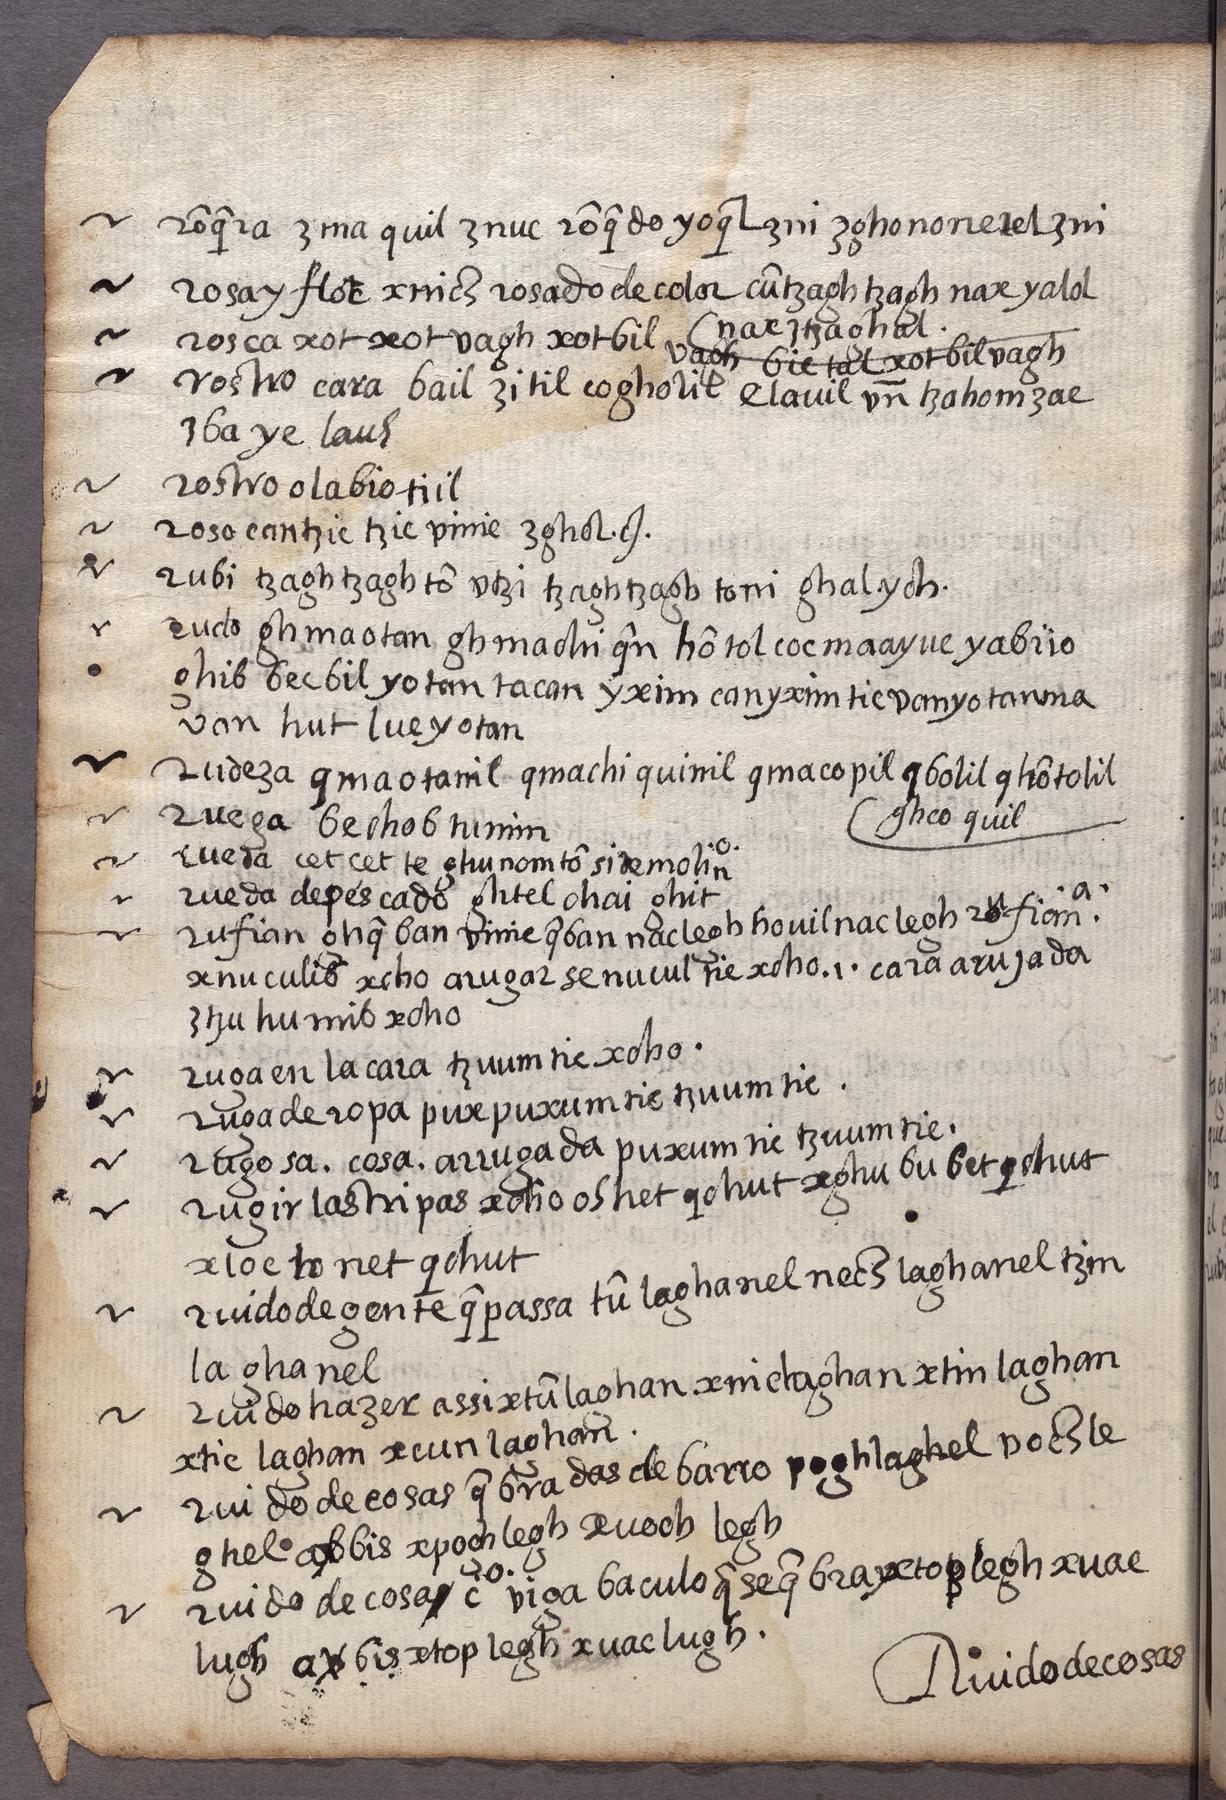 rõq̃ra ʒma quil ʒnuc rõq̃do yoq̃l ʒni ʒghononerel ʒni
rosa y flor xnich rosado de color cũtzagh tzagh nax yalol
(nax ʒtzaghal.
rosca xot xot vagh xotbil vagh bic tal xotbil vagh
rostro cara bail zitil cogholil elauil vn̄ tzahom zae
ʒba ye lauh
rostro o labio tiil
roso cantzic tzic vinic ʒghol.
rubi tzagh tzagh tõ vtzi tzagh tzagh toni ghal.ych.
rudo ghmaotan ghmachi q̃n hõtol coc maayuc yabiio
ghib becbil yotan tacan yxim can yxim tic vanyotan ma
van hut luc yotan
rudeza qmaotanil qmachi quinil qmacopil qbolil qhõtolil
(ghco quil
ruega bechob tunim
rueda cet cet te ghunomtõ si de molino.
rueda de pescado ghtel chai ghit
rufian ghq̃ban vinic q̃ban naclegh houil naclegh rufiana.
xnuculib xcho arugarse nucul tic xcho.1. cara arujada
ʒtzuhumib xcho
ruga en la cara tzuum tic xcho.
ruga de ropa puxpuxum tic tzuum tic.
rugosa. cosa. arrugada puxum tic tzuum tic.
rugir las tripas xchooshet qchut xghububet qchut
xioc honet qchut
ruido de gente q̃ passa tũ laghanel nech laghanel tzin
laghanel
ruido hazer assi xtũ laghan xnic laghan xtin laghan
xtic laghan xcun laghan.
ruido de cosas q̃bradas de barro poghlaghel vochle
ghel abbis xpoch legh xuoch legh
ruido de cosa cõ. viga baculo q̃ se q̃bra xtop legh xuac
lugh abbis xtop legh xuac lugh.
Ruido de cosas